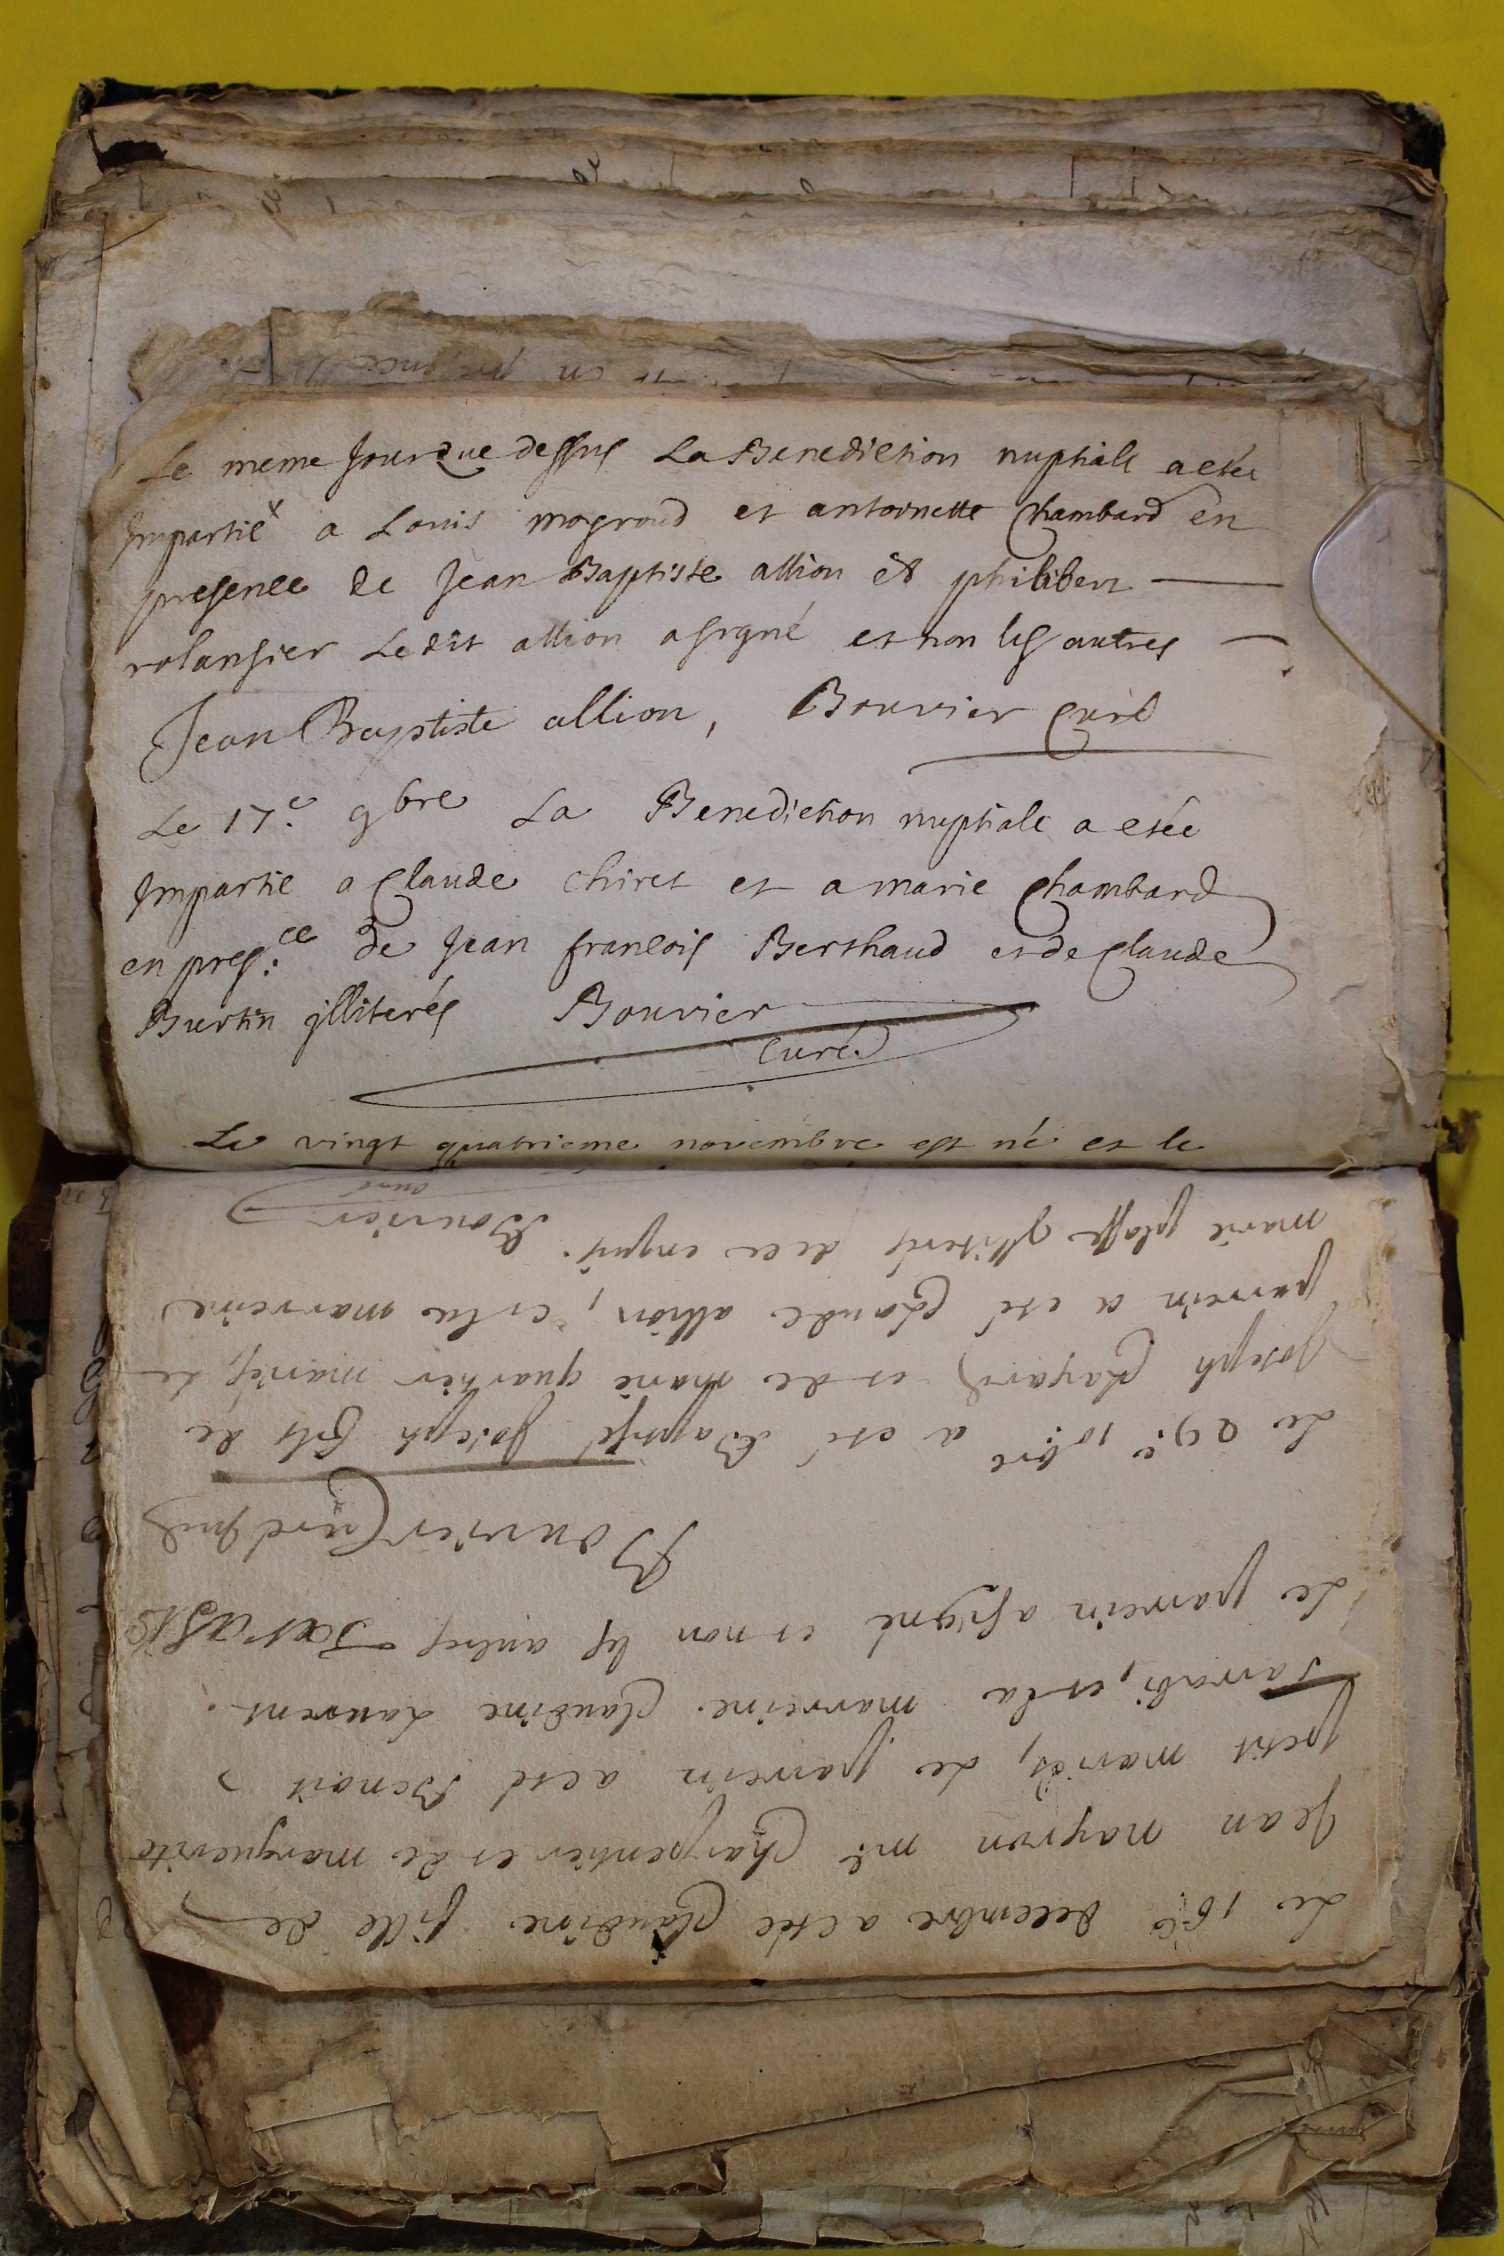 Le meme Jour que dessus La Benediction nuptiale a etée
Impartie a Louis mogroud et antoinette Chambard en
presence de Jean Baptiste allion et philibert
rolansier Ledit allion a signé et non les autres
Jean Baptiste allion, Bouvier Curé
Le 17.e 9bre La Benediction nuptiale a etée
Impartie a Claude Chiret et a marie Chambard
en pres:ce de Jean francois Berthaud et de Claude
Burtin illiterés Bouvier
Curé
Le vingt quatrieme novembre est né et le
Le 16.e decembre a etée Claudine fille de
Jean mayron m.e Charpentier et de marguerite
petit mariés, Le parrein a eté Benoit
Sarrasi, et la marreine Claudine Laurent.
Le parrein a signé et non les autres
Bouvier Curé
Le 29.e 10bre a eté Baptisé Joseph fils de
Joseph Chayard et de marie quartier mariés, Le
parrein a eté Claude allion, et la marreine
marie illiterés de ce enquis. Bouvier
curé